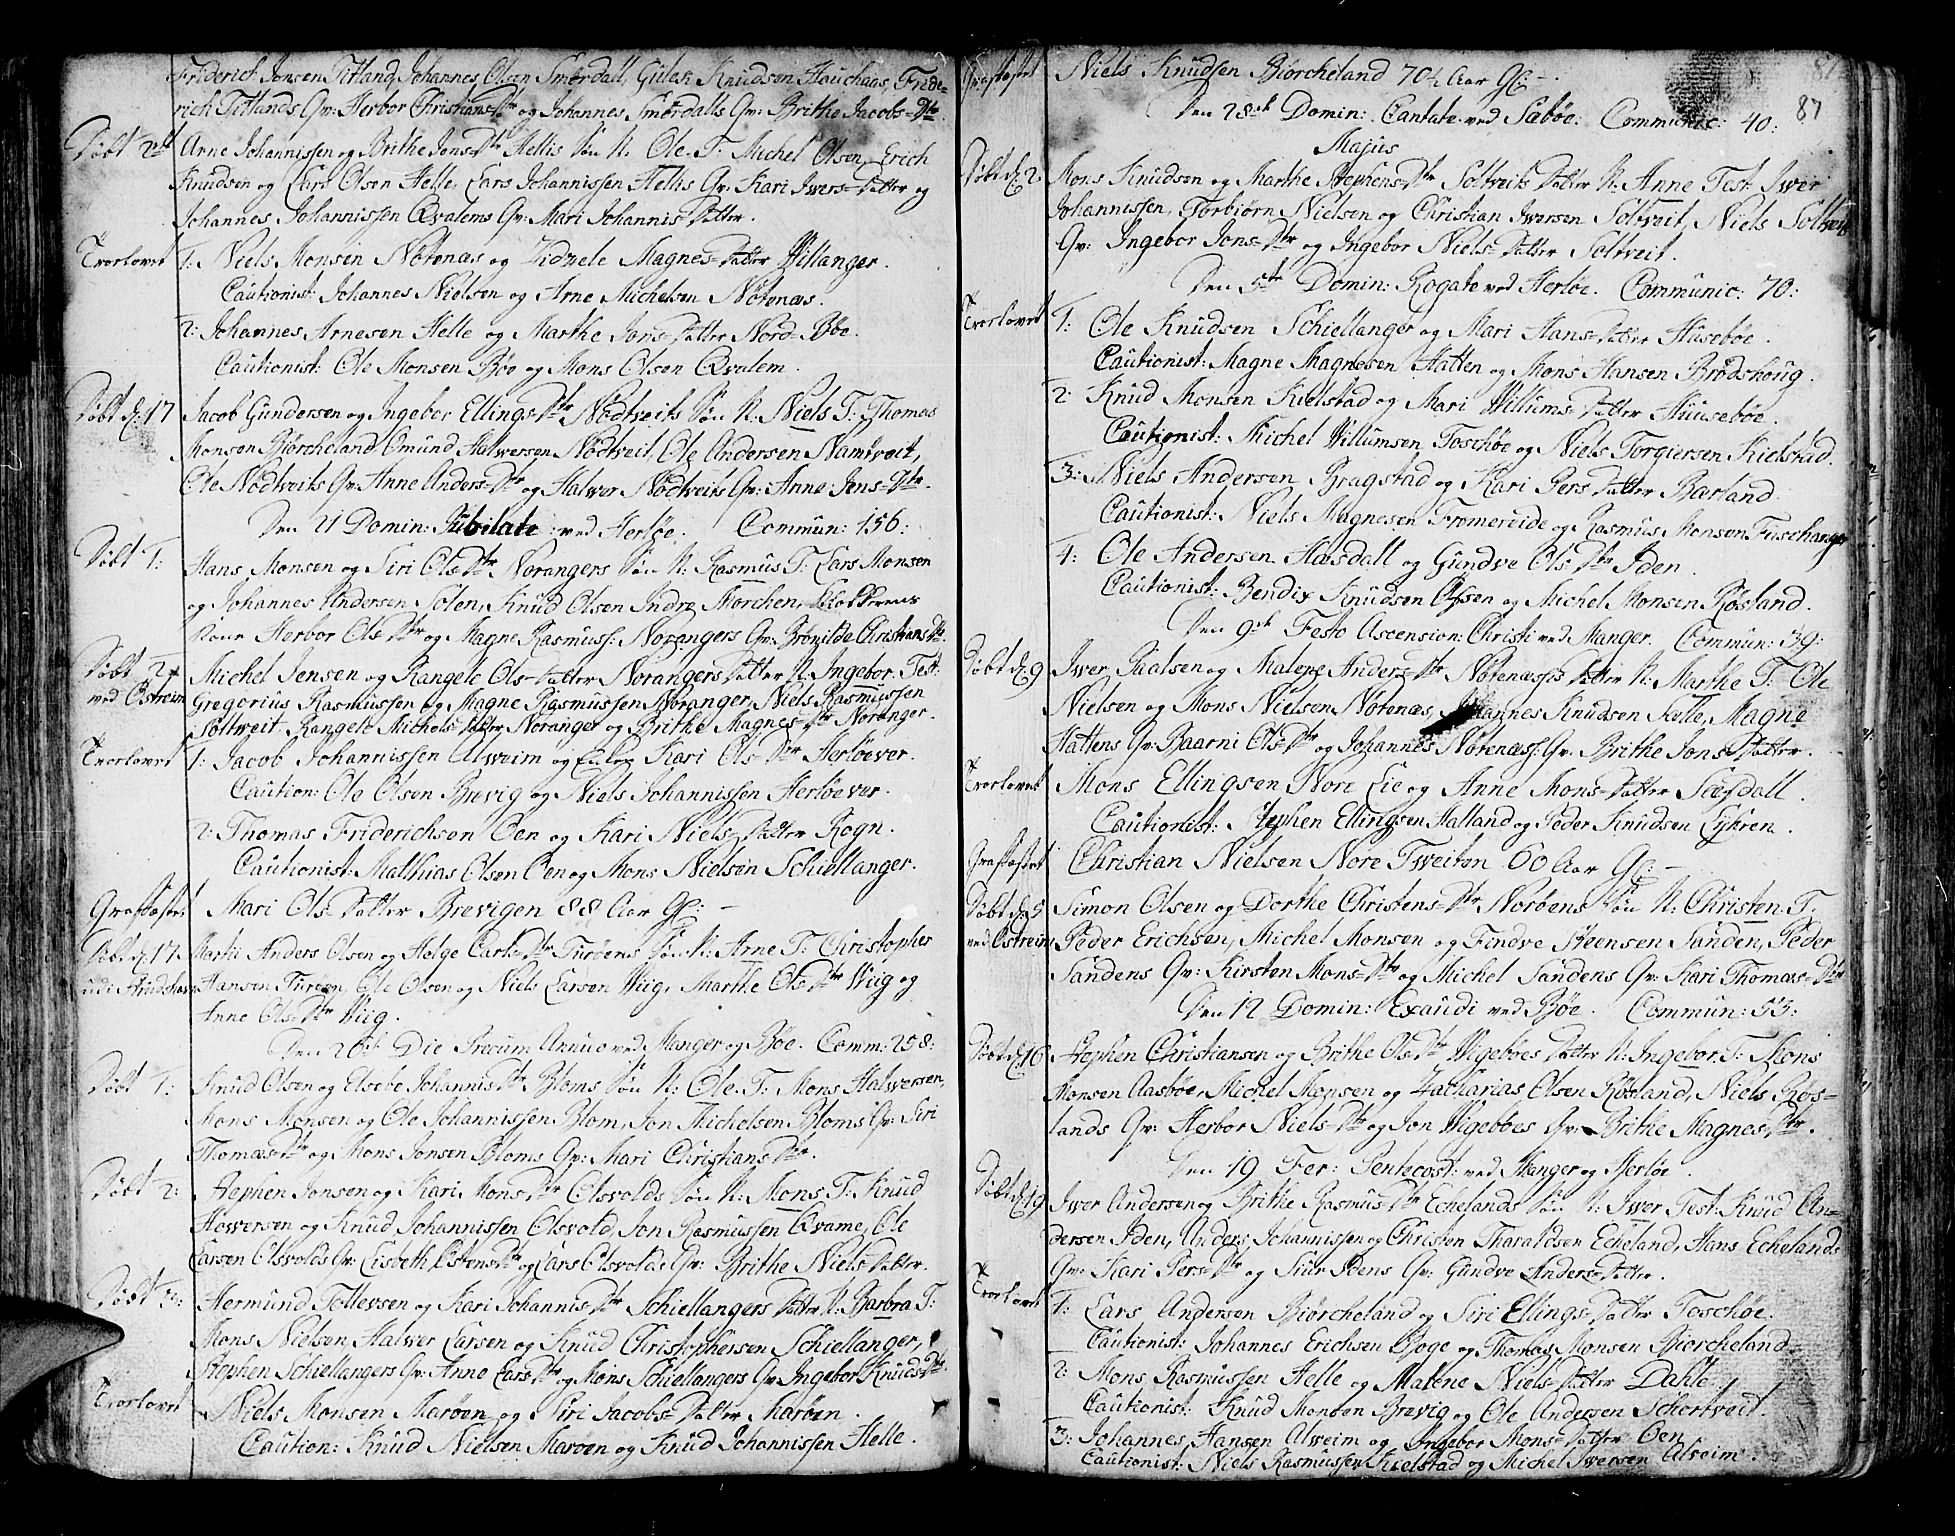 Friderich Jonsen Titland, Johannes Olsen Smørdall, Gulak Knudsen Hauchaas, Fride-
rich Titlands Qv: Herbor Christians-Dtr og Johannes Smørdalls Qv: Brithe Jacobs-Dtr
Døbt 2det Arne Johannissen og Brithe Jons-Dtr Hellis Søn N: Ole. T: Michel Olsen, Erich
Knudsen og Lars Olsen Helle, Lars Johannissen Hellis Qv: Kari Iwers-Datter og
Johannes Johannissen Qvalems Qv: Mari Johannis-Datter.
Trorlovet 1: Niels Monsen Nøtenæs og Magnes-Datter Willanger.
Cautionist: Johannes Nielsen og Arne Michelsen Nøtenæs.
2: Johannes Arnesen Helle og Marthe Jons-Datter Nord-Bøe.
Cautionist: Ole Monsen Bøe og Mons Olsen Qvalem.
Døbt d: 17 Jacob Gundersen og Ingebor Ellings-Dtr Nødtveits Søn N: Niels T: Thomas
Monsen Biørcheland, Omund Halwersen Nødtveit, Ole Andersen Namtveit,
Ole Nødtveits Qv: Anne Anders-Dtr og Halwer Nødtveits Qv: Anne Jens-Dtr.
Den 21 Domin: Jubilate ved Herløe. Commun: 156:
Døbt 1: Hans Monsen og Siri Ols-Dtr Norangers Søn N: Rasmus T: Lars Monsen
og Johannes Andersen Solen, Knud Olsen Indre Morchen,
Herbor Ols-Dtr og Magne Rasmuss: Norangers Qv: Brønilde Christians-Dtr
Døbt 2
ved Østreim Michel Jensen og Rangele Ols-Datter Norangers Datter N: Ingebor. Test:
Gregorius Rasmussen og Magne Rasmussen Noranger, Niels Rasmussen
Soltveit, Rangele Michels-Datter Noranger og Brithe Magnes-Dtr Noranger.
Trorlovet 1: Jacob Johannissen Alweim og Kari Ols-Dtr Herløever.
Caution: Ole Olsen Brevig og Niels Johannissen Herløever.
2: Thomas Friderichsen Oen og Kari Niels-Datter Rogn.
Cautionist: Matthias Olsen Oen og Mons Nielsen Schiellanger.
Grafæstet Mari Ols-Datter Brevigen 88 Aar Gl: —
Døbt d: 17 Anders Olsen og Helge Carls-Dtr Turøens Søn N: Arne T: Christopher
Hansen Turøen, Ole Olsen og Niels Larsen Wiig, Marthe Ols-Dtr Wiig og
Anne Ols-Dtr Wiig.
Den 26de Die Precum Annuo ved Manger og Bøe. Comm: 258:
Døbt 1: Knud Olsen og Elsebe Johannis-Dtr Bloms Søn N: Ole. T: Mons Halwersen,
Mons Monsen og Ole Johannissen Blom, Jon Michelsen Bloms Qv: Siri
Thomas-Dtr og Mons Jonsen Bloms Qv: Mari Christians Dtr.
Døbt 2: Stephen Jonsen og Kari Mons-Dtr Olsvolds Søn N: Mons. T: Knud
Hawersen og Knud Johannissen Olsvold, Jon Rasmussen Qvame, Ole
Larsen Olsvolds Qv: Lisbeth Østens-Dtr og Lars Olsvolds Qv: Brithe Niels-Datter.
Døbt 3: Hermund Tollevsen og Kari Johannis-Dtr Schiellangers Datter N: Barbra T:
Mons Nielsen, Halwer Larsen og Knud Christophersen Schiellanger,
Stephen Schiellangers Qv: Anne Lars-Dtr og Mons Schiellangers Qv: Ingebor Knuds-Dtr
Trorlovet Niels Monsen Marøen og Siri Jacobs-Datter Marøen.
Caution: Knud Nielsen Marøen og Knud Johannissen Helle.
87
87
Grafæstet Niels Knudsen Biørcheland 70½ Aar Gl: —.
Den 28de Domin: Cantate ved Sæbøe: Communic: 40:
Majus
Døbt d: 2. Mons Knudsen og Marthe Stephens-Dtr Soltveits Datter N: Anne Test: Iwer
Johannissen, Torbiørn Nielsen og Christian Iwersen Soltveit, Niels Soltveits
Qv: Ingebor Jons-Dtr og Ingebor Niels-Datter Soltveit.
Den 5te Domin: Rogate ved Herløe. Communic: 70:
Trorlovet 1: Ole Knudsen Schiellanger og Mari Hans-Datter Husebøe.
Cautionist: Magne Magnesen Hatten og Mons Hansen Brødshoug.
2: Knud Monsen Kielstad og Mari Willums-Datter Huusebøe.
Cautionist: Michel Willumsen Toschøe og Niels Torgiersen Kielstad.
3: Niels Andersen Bragstad og Kari Pers Datter Barland.
Cautionist: Niels Magnesen Fromereide og Rasmus Monsen Fuschanger
4: Ole Andersen Hæsdall og Gundve Ols Dtr Iden.
Cautionist: Bendix Knudsen Ofsen og Michel Monsen Røsland.
Den 9de Festo Ascension: Christi ved Manger. Commun: 39:
Døbt d: 9 Iwer Paalsen og Malene Anders-Dtr Nøtenæses Datter N: Marthe T: Ole
Nielsen og Mons Nielsen Nøtenæs, Johannes Knudsen Fælle, Magne
Hattens Qv: Baarni Ols-Dtr og Johannes Nøtenæs: Qv: Brithe Jons Datter.
Trorlovet Mons Ellingsen Nore Lie og Anne Mons-Datter Sæsdall.
Cautionist: Stephen Ellingsen Halland og Peder Knudsen Lykren.
Grafæstet Christian Nielsen Nore Tweiten 60 Aar Gl: —
Døbt d: 5
ved Østreim Simon Olsen og Dorthe Christens-Dtr Norbens Søn N: Christen. T:
Peder Erichsen, Michel Monsen og Findve Steensen Sanden, Peder
Sandens Qv: Kirsten Mons-Dtr og Michel Sandens Qv: Kari Thomas-Dtr
Den 12 Domin: Exaudi ved Bøe. Commun: 55:
Døbt d: 16 Stephen Christiansen og Brithe Ols-Dtr Wigebøes Datter N: Ingebor. T: Mons
Monsen Aasbøe, Michel Monsen og Zacharias Olsen Røsland, Niels Røs-
lands Qv: Herbor Niels-Dtr og Jon Wigebøes Qv: Brithe Magnes-Dtr.
Den 19 Fer: Pentecost: ved Manger og Herløe.
Døbt d: 19 Iwer Andersen og Brithe Rasmus-Dtr Echelands Søn N: Iwer Test: Knud An-
dersen Iden, Anders Johannissen og Christen Tharaldsen Echeland, Hans Echelands
Qv: Kari Pers-Dtr og Siur Idens Qv: Gundve Anders-Datter.
Trorlovet 1: Lars Andersen Biørcheland og Siri Ellings-Datter Toschøe.
Cautionist: Johannes Erichsen Boge og Thomas Monsen Biørcheland.
2: Mons Rasmussen Helle og Malene Niels-Datter Dahle.
Cautionist: Knud Monsen Brevig og Ole Andersen Schortveit.
3: Johannes Hansen Alweim og Ingebor Mons-Datter Oen
Cautionist: Niels Rasmussen Kielstad og Michel Iwersen Alveim.